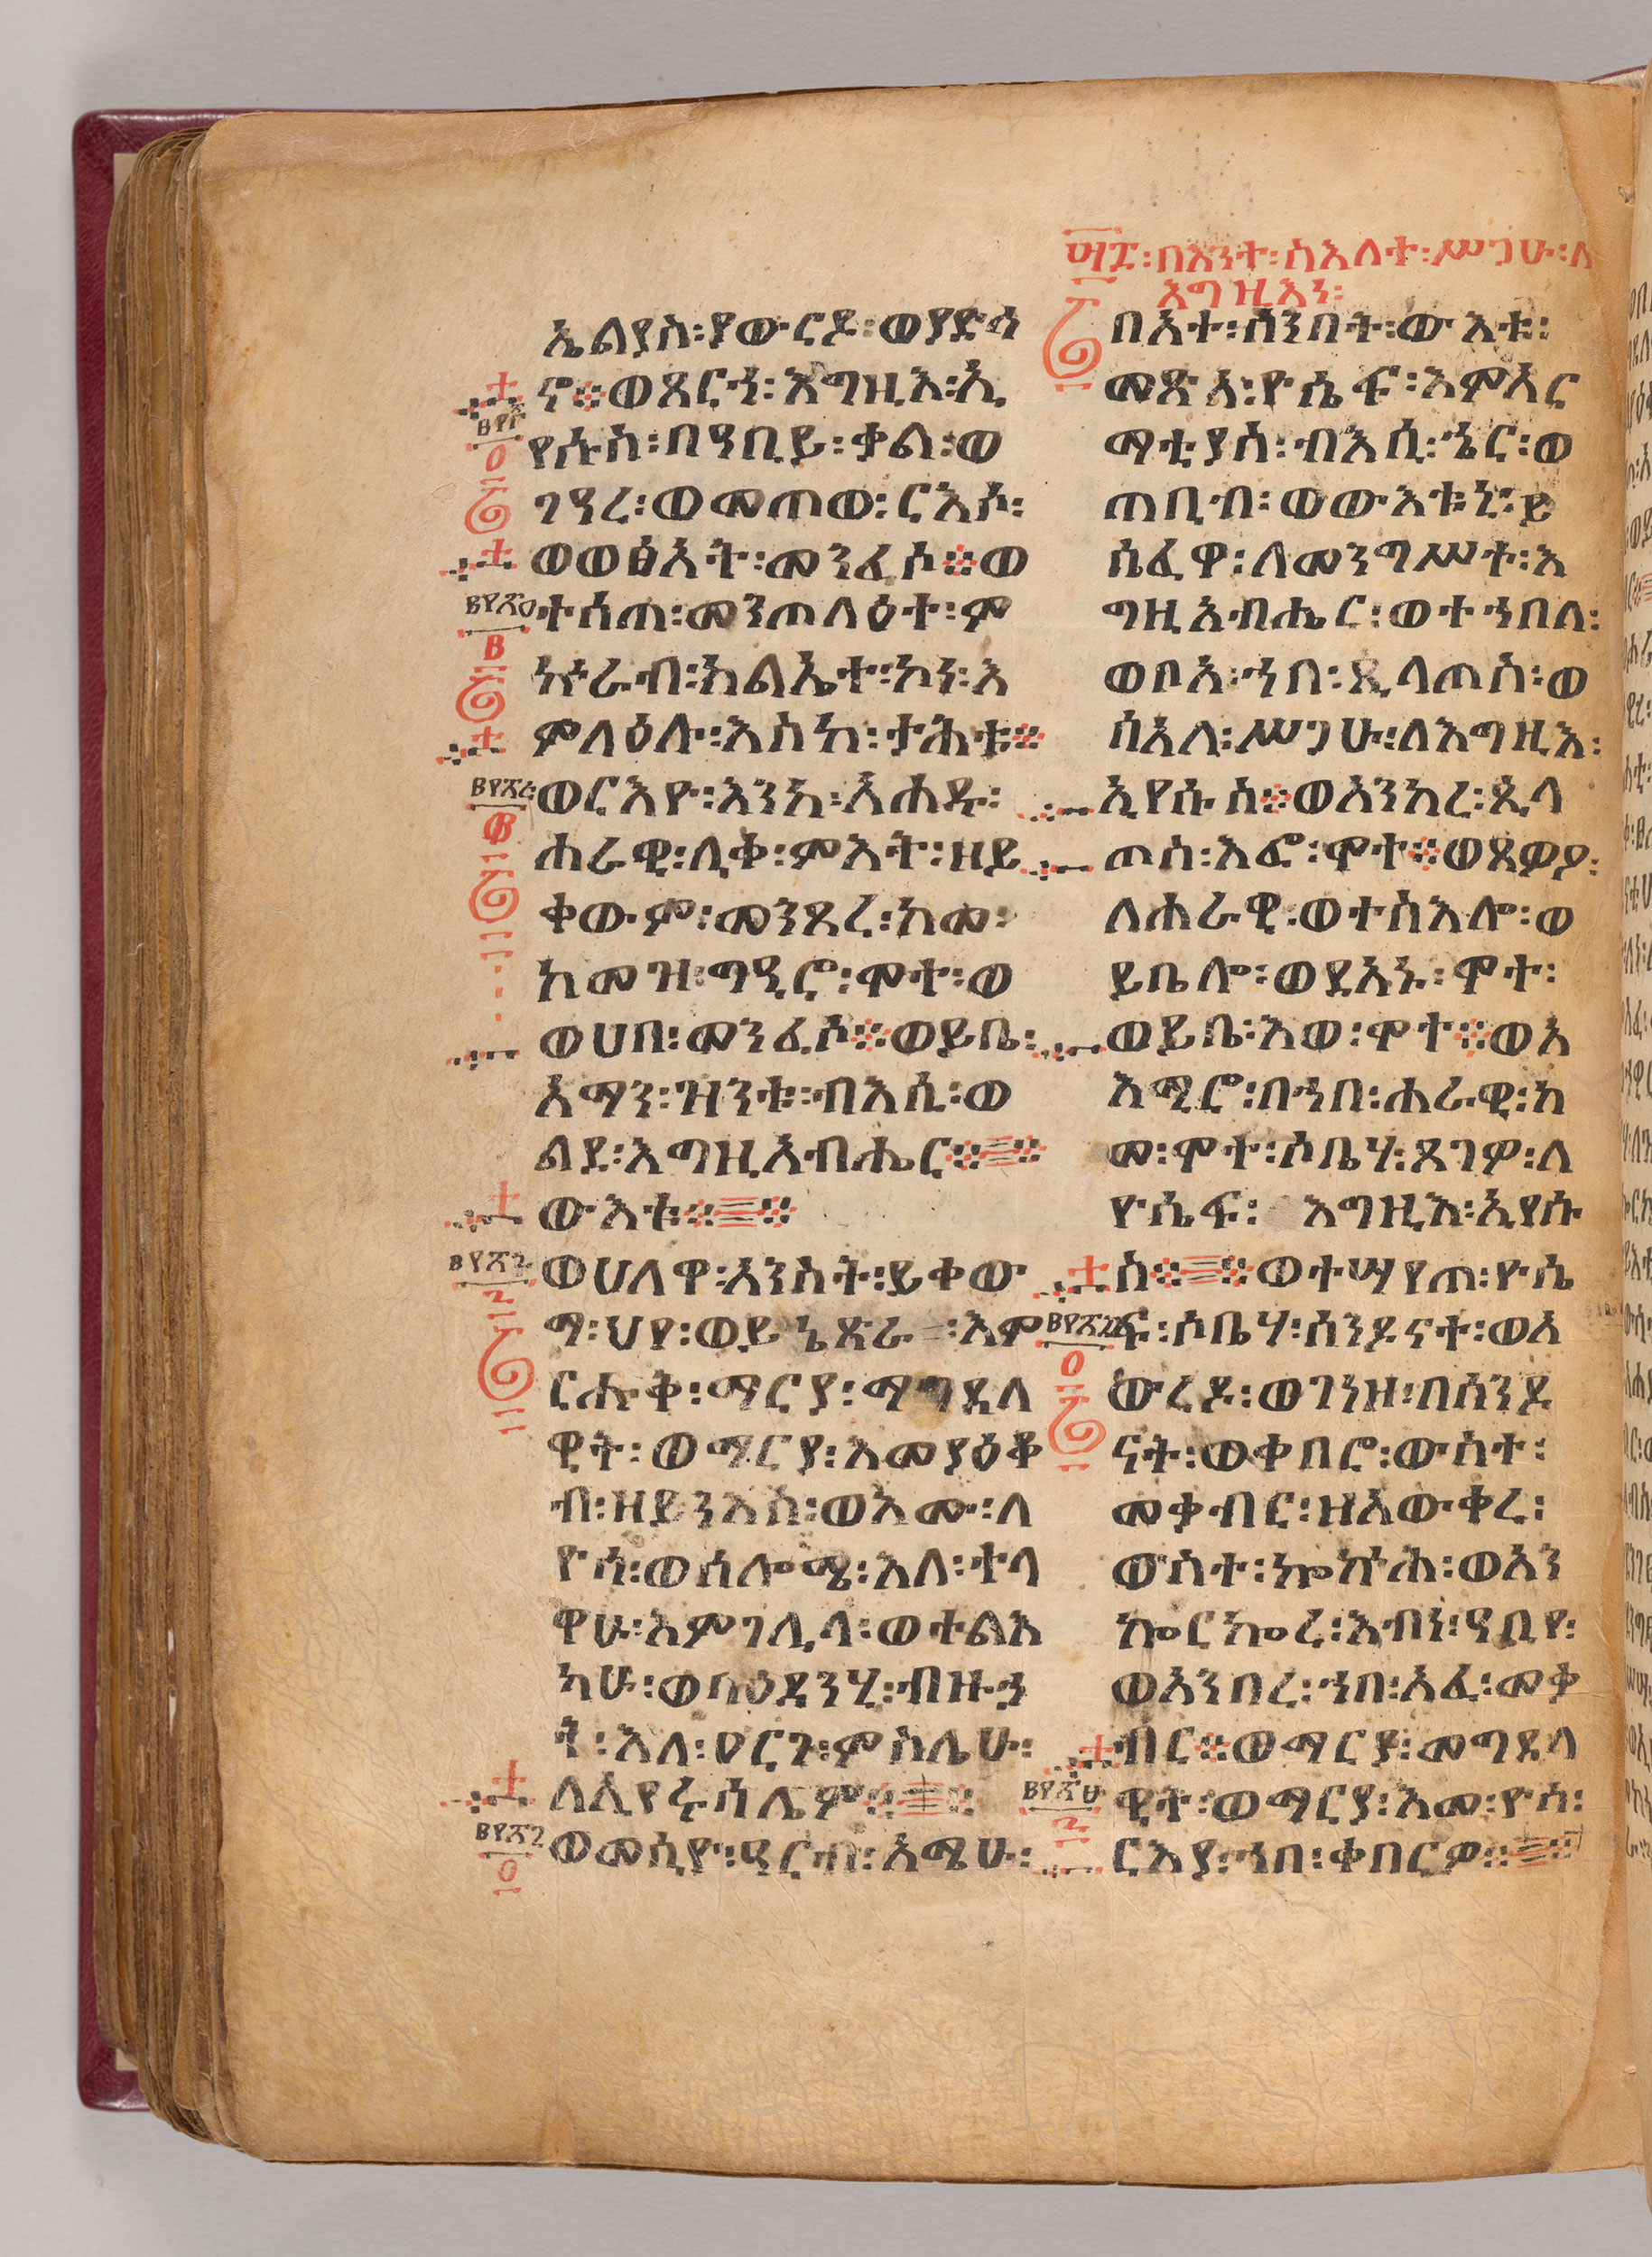 ኤልያስ፡ያውርዶ፡ወያድኅ
ኖ፨ወጸርኀ፡እግዚእ፡ኢ
የሱስ፡በዓቢይ፡ቃል፡ወ
ገዓረ፡ወመጠወ፡ርእሶ፡
ወወፅአት፡መንፈሶ፨ወ
ተሰጠ፡መንጦላዕተ፡ም
ኵራብ፡ክልኤተ፡ኮነ፡እ
ምላዕሉ፡እስከ፡ታሕቱ፨
ወርእዮ፡እንከ፡አሐዱ፡
ሐራዊ፡ሊቅ፡ምእት፡ዘይ
ቀውም፡መንጸረ፡ከመ፡
ከመዝ፡ግዒሮ፡ሞተ፡ወ
ወሀበ፡መንፈሶ፨ወይቤ፡
አማን፡ዝንቱ፡ብእሲ፡ወ
ልደ፡እግዚአብሔር፨
ውእቱ፨
ወሀለዋ፡አንስት፡ይቀው
ማ፡ህየ፡ወይኔጽራ፡እም
ርሑቅ፡ማርያ፡ማግደላ
ዊት፡ወማርያ፡እመ፡ያዕቆ
ብ፡ዘይንእስ፡ወእሙ፡ለ
ዮሳ፡ወሰሎሜ፡እለ፡ተላ
ዋሁ፡እምገሊላ፡ወተልእ
ካሁ፡ወባዕዳንሂ፡ብዙኃ
ት፡እለ፡ዐርጉ፡ምስሌሁ፡
ለኢየሩሳሌም፨
ወመስዮ፡ዓርብ፡አሜሁ፡
፵፰፡በእንተ፡ስእለተ፡ሥጋሁ፡ለ
እግዚእነ፡
በእተ፡ሰንበት፡ውእቱ፡
መጽአ፡ዮሴፍ፡እምአር
ማቲያስ፡ብእሲ፡ኄር፡ወ
ጠቢብ፡ወውእቱኒ፡ይ
ሴፈዋ፡ለመንግሥተ፡እ
ግዚአብሔር፡ወተኀበለ፡
ወቦአ፡ኀበ፡ጲላጦስ፡ወ
ሰአለ፡ሥጋሁ፡ለእግዚእ፡
ኢየሱስ፨ወአንከረ፡ጲላ
ጦስ፡እፎ፡ሞተ፨ወጸውዖ፡
ለሐራዊ፡ወተስእሎ፡ወ
ይቤሎ፡ወደአኑ፡ሞተ፡
ወይቤ፡እወ፡ሞተ፨ወእ
እሚሮ፡በኀበ፡ሐራዊ፡ከ
መ፡ሞተ፡ሶቤሃ፡ጸገዎ፡ለ
ዮሴፍ፡እግዚእ፡ኢየሱ
ስ፨ወተሣየጠ፡ዮሴ
ፍ፡ሶቤሃ፡ሰንዶናተ፡ወአ
ውረዶ፡ወገነዞ፡በሰንዶ
ናት፡ወቀበሮ፡ውስተ፡
መቃብር፡ዘአውቀረ፡
ውስተ፡ኰኵሕ፡ወአን
ኰርኰረ፡እብነ፡ዓቢየ፡
ወአንበረ፡ኀበ፡አፈ፡መቃ
ብር፨ወማርያ፡መግደላ
ዊት፡ወማርያ፡እመ፡ዮሳ፡
ርእያ፡ኀበ፡ቀበርዎ፨